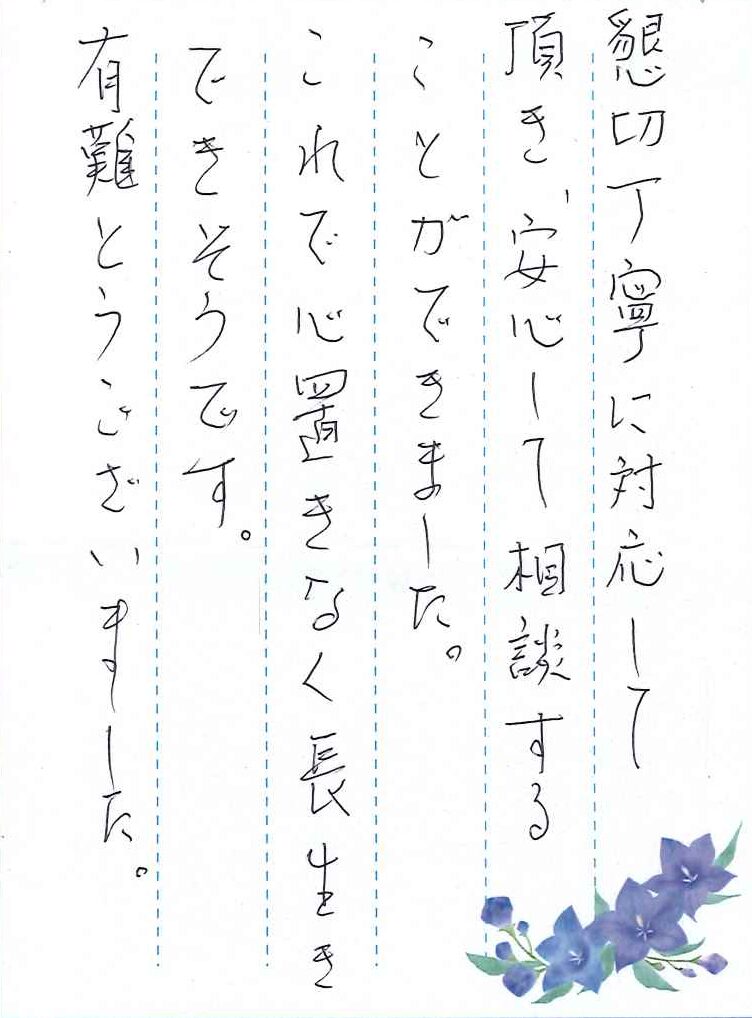 懇切丁寧に対応して
頂き、安心して相談する
ことができました。
これで心置きなく長生き
できそうです。
有難とうございました。